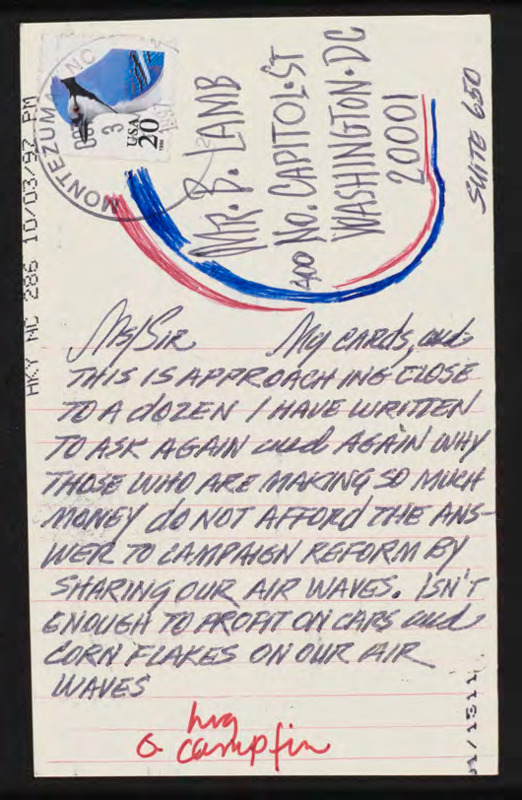 MONTEZUMA, NC
OCT
3
1997
USA
20
HKY NC 286 10/03/97 PM
MR. B. LAMB
400 NO. CAPITOL.ST
WASHINGTON.DC
20001
SUITE 650
Ms/SIR My CARDS, and
THIS IS APPROACHING CLOSE
TO A dOZEN I HAVE WRITTEN
TO ASK AGAIN and AGAIN WHY
THOSE WHO ARE MAKING SO MUCH
MONEY dO NOT AFFORd THE ANS-
WER TO CAMPAIGN REFORM BY
SHARING OUR AIR WAVES. ISN'T
ENOUGH TO PROFIT ON CARS and
CORN FLAKES ON OUR AIR
WAVES